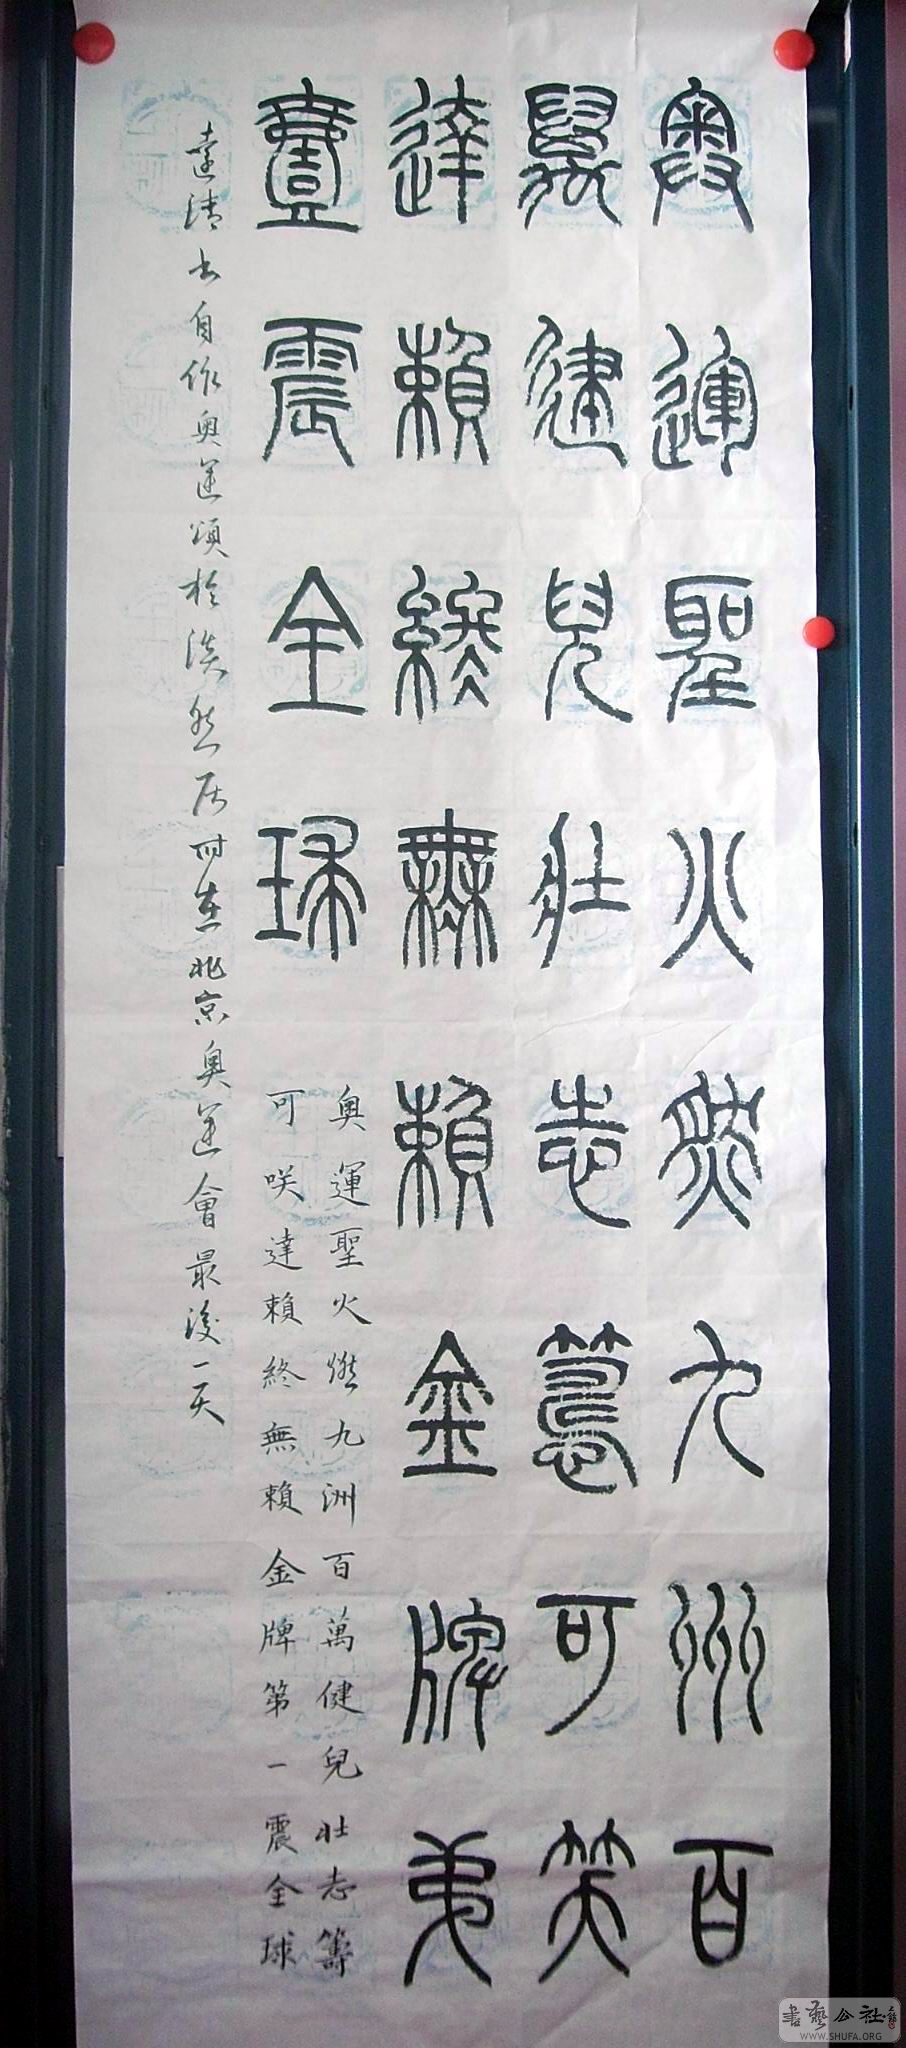 奥運聖火然九州百
萬健兒壯志籌可笑
達賴終無賴金牌弟
壹震全球
奥運聖火燃九洲百萬健兒壯志籌
可咲達賴終無賴金牌第一震全球
達清书自作奥運頌於淡然居时在北京奥運會最後一天
書藝公社
WWW.SHUFA.ORG